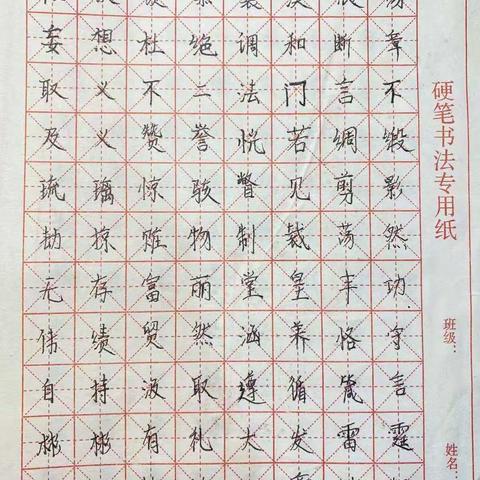 妄想杜绝调和断章
取义不二法门言不
及义赞誉恍若绸缎
琉璃惊骇瞥见剪影
劫掠赃物制裁荡然
无存富丽堂皇丰功
伟绩贸然涵养恪守
自持汲取遵循箴言
彬彬有礼大发雷霆
硬笔书法专用纸
班级：
姓名：